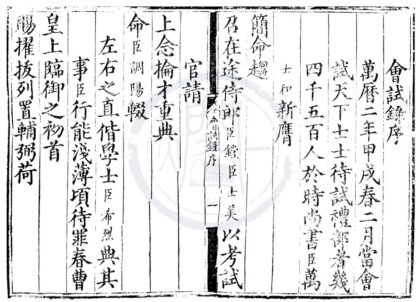 會試錄序
萬曆二年甲戌春二月當會
試天下士士待試禮部者幾
四千五百人於時尚書臣萬
士和新膺
簡命趨
召在途侍郎臣鏜臣士美以考試
會試錄序 一
官請
上念掄才重典
命臣調陽輟
左右之直偕學士臣希烈典其
事臣行能淺薄頃待罪春曹
皇上臨御之初首
賜擢拔列置輔弼荷